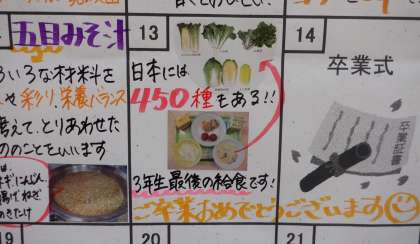 五目みそ汁
いろな材料を
や彩り、栄養バランス
考えて、とりあわせた
もののことをいいます
ネギ、にんじん、
揚げ、ねぎ
えのきたけ
13
日本には
450種もある!!
3年生最後の給食です!
ご卒業おめでとうございます
14
卒業式
卒業証書
19
20
21